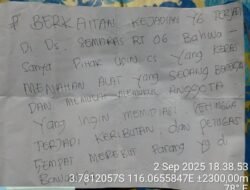 P BERKAITAN KEJADIAN YG TERJADI
Di Ds. SEMARAS RT 06 BAHWA -
SANYA PIHAK UPIN CS YANG KERAS
MENAHAN ALAT YANG SEDANG BEKERJA
DAN MEMUKUL ANGGOTA
YANG INGIN MEMEDIASI SEHINGGA
TERJADI KERIBUTAN DAN PETUGAS
SEMPAT MEREBUT PARANG YG DI
BAWA
2 Sep 2025 18:38:53
3.7812057S 116.0655847E ±2300,00m